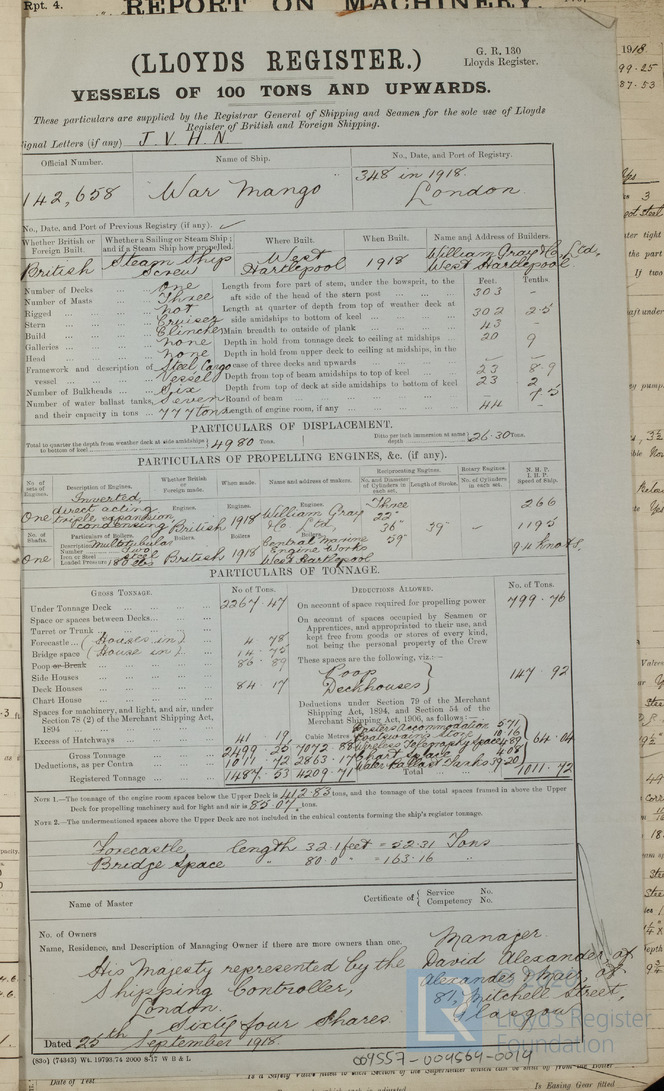 Rpt. 4. REPORT ON MACHINERY.
(LLOYDS REGISTER.)
G. R. 130
Lloyds Register.
VESSELS OF 100 TONS AND UPWARDS.
These particulars are supplied by the Registrar General of Shipping and Seamen for the sole use of Lloyds
Register of British and Foreign Shipping.
ignal Letters (if any) J. V. H. N.
Official Number. Name of Ship. No., Date, and Port of Registry.
142,658 War Mango 348 in 1918.
London
No., Date, and Port of Previous Registry (if any).
Whether British or Foreign Built. Whether a Sailing or Steam Ship; and if a Steam Ship how propelled. Where Built. When Built. Name and Address of Builders.
British Steam Ship Screw West Hartlepool 1918 William Gray & Co. Ltd, West Hartlepool
Number of Decks One
Number of Masts Three
Rigged not
Stern Cruiser
Build Clincher
Galleries none
Head none
Framework and description of vessel Steel, Cargo Vessel
Number of Bulkheads Six
Number of water ballast tanks, Seven
and their capacity in tons 777 tons
Feet. Tenths.
Length from fore part of stem, under the bowsprit, to the
aft side of the head of the stern post 303 -
Length at quarter of depth from top of weather deck at
side amidships to bottom of keel 302 25
Main breadth to outside of plank 43 -
Depth in hold from tonnage deck to ceiling at midships 20 9
Depth in hold from upper deck to ceiling at midships, in the
case of three decks and upwards
Depth from top of beam amidships to top of keel 23 89
Depth from top of deck at side amidships to bottom of keel 23 2
Round of beam
Length of engine room, if any 44 -
PARTICULARS OF DISPLACEMENT.
Total to quarter the depth from weather deck at side amidships to bottom of keel 4980 Tons. Ditto per inch immersion at same depth 26.30 Tons.
PARTICULARS OF PROPELLING ENGINES, &c. (if any).
No. of sets of Engines. Description of Engines. Whether British or Foreign made. When made. Name and address of makers. Reciprocating Engines. Rotary Engines. N. H. P. I. H. P. Speed of Ship.
No. and Diameter of Cylinders in each set. Length of Stroke. No. of Cylinders in each set.
One Inverted, direct acting triple expansion, condensing
Engines. British Engines. 1918 Engines. William Gray & Co. Ltd,
Three 22" 36" 59" 39" - 266
1195
9.4 knots.
No. of Shafts. Particulars of Boilers. Boilers Boilers Boilers.
One Description Multitubular
Number Two
Iron or Steel Steel
Loaded Pressure 180 lbs
British 1918 Central Marine Engine Works West Hartlepool
PARTICULARS OF TONNAGE.
GROSS TONNAGE. No of Tons. DEDUCTIONS ALLOWED. No. of Tons.
Under Tonnage Deck 2267.47
Space or spaces between Decks
Turret or Trunk
Forecastle (Houses in) 4.78
Bridge space (House in) 14.75
Poop or Break 86.89
Side Houses
Deck Houses 84.17
Chart House
Spaces for machinery, and light, and air, under
Section 78 (2) of the Merchant Shipping Act,
1894
Excess of Hatchways 41.19
Cubic Metres
Gross Tonnage 2499.25 7072.88
Deductions, as per Contra 1011.72 2863.17
Registered Tonnage 1487.53 4209.71
On account of space required for propelling power 799.76
On account of spaces occupied by Seamen or
Apprentices, and appropriated to their use, and
kept free from goods or stores of every kind,
not being the personal property of the Crew
These spaces are the following, viz.:—
Poop
Deckhouses } 147.92
Deductions under Section 79 of the Merchant
Shipping Act, 1894, and Section 54 of the
Merchant Shipping Act, 1906, as follows:—
Masters Accommodation 5.71
Boatswains Store 10.16
Wireless Telegraphy Space 4.89
Chart Space 4.08
Water Ballast Tanks 39.20
64.04
Total 1011.72
NOTE 1.—The tonnage of the engine room spaces below the Upper Deck is 412.83 tons, and the tonnage of the total spaces framed in above the Upper
Deck for propelling machinery and for light and air is 85.07 tons.
NOTE 2.—The undermentioned spaces above the Upper Deck are not included in the cubical contents forming the ship's register tonnage.
Forecastle length 32.1 feet = 52.31 Tons
Bridge Space " 80.0 " = 163.16 "
Name of Master Certificate of { Service No.
Competency No.
No. of Owners
Name, Residence, and Description of Managing Owner if there are more owners than one.
His Majesty represented by the
Shipping Controller,
London.
Sixty four Shares
Manager
David Alexander, of
Alexander & Mair, of
87, Mitchell Street,
Glasgow
Dated 25th September 1918.
(830) (74343) Wt. 19793.74 2000 8-17 W B & L
004557-004564-0014
Lloyd's Register
Foundation
Date of Test